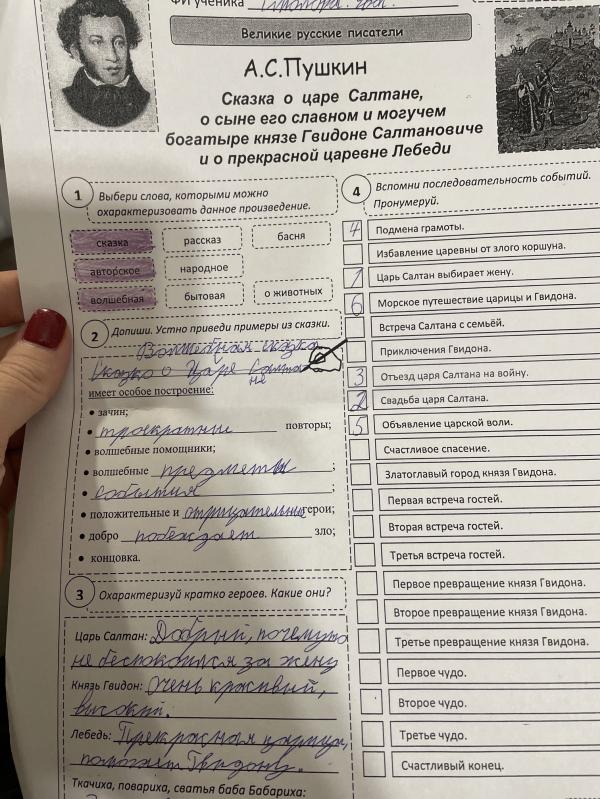 ФИ ученика
Великие русские писатели
А.С.Пушкин
Сказка о царе Салтане,
о сыне его славном и могучем
богатыре князе Гвидоне Салтановиче
и о прекрасной царевне Лебеди
1 Выбери слова, которыми можно
охарактеризовать данное произведение.
сказка рассказ басня
авторское народное
волшебная бытовая о животных
2 Допиши. Устно приведи примеры из сказки.
Волшебная сказка
Сказка о Царе Салта
не
имеет особое построение:
• зачин;
• троекратные повторы;
• волшебные помощники;
• волшебные предметы ;
• события ;
• положительные и отрицательные герои;
• добро побеждает зло;
• концовка.
3 Охарактеризуй кратко героев. Какие они?
Царь Салтан: Добрый, почемуто
не беспокоился за жену
Князь Гвидон: Очень красивый,
высокий.
Лебедь: Прекрасная
помогает Гвидону.
Ткачиха, повариха, сватья баба Бабариха:
4 Вспомни последовательность событий.
Пронумеруй.
4 Подмена грамоты.
Избавление царевны от злого коршуна.
1 Царь Салтан выбирает жену.
6 Морское путешествие царицы и Гвидона.
Встреча Салтана с семьёй.
Приключения Гвидона.
3 Отъезд царя Салтана на войну.
2 Свадьба царя Салтана.
5 Объявление царской воли.
Счастливое спасение.
Златоглавый город князя Гвидона.
Первая встреча гостей.
Вторая встреча гостей.
Третья встреча гостей.
Первое превращение князя Гвидона.
Второе превращение князя Гвидона.
Третье превращение князя Гвидона.
Первое чудо.
Второе чудо.
Третье чудо.
Счастливый конец.